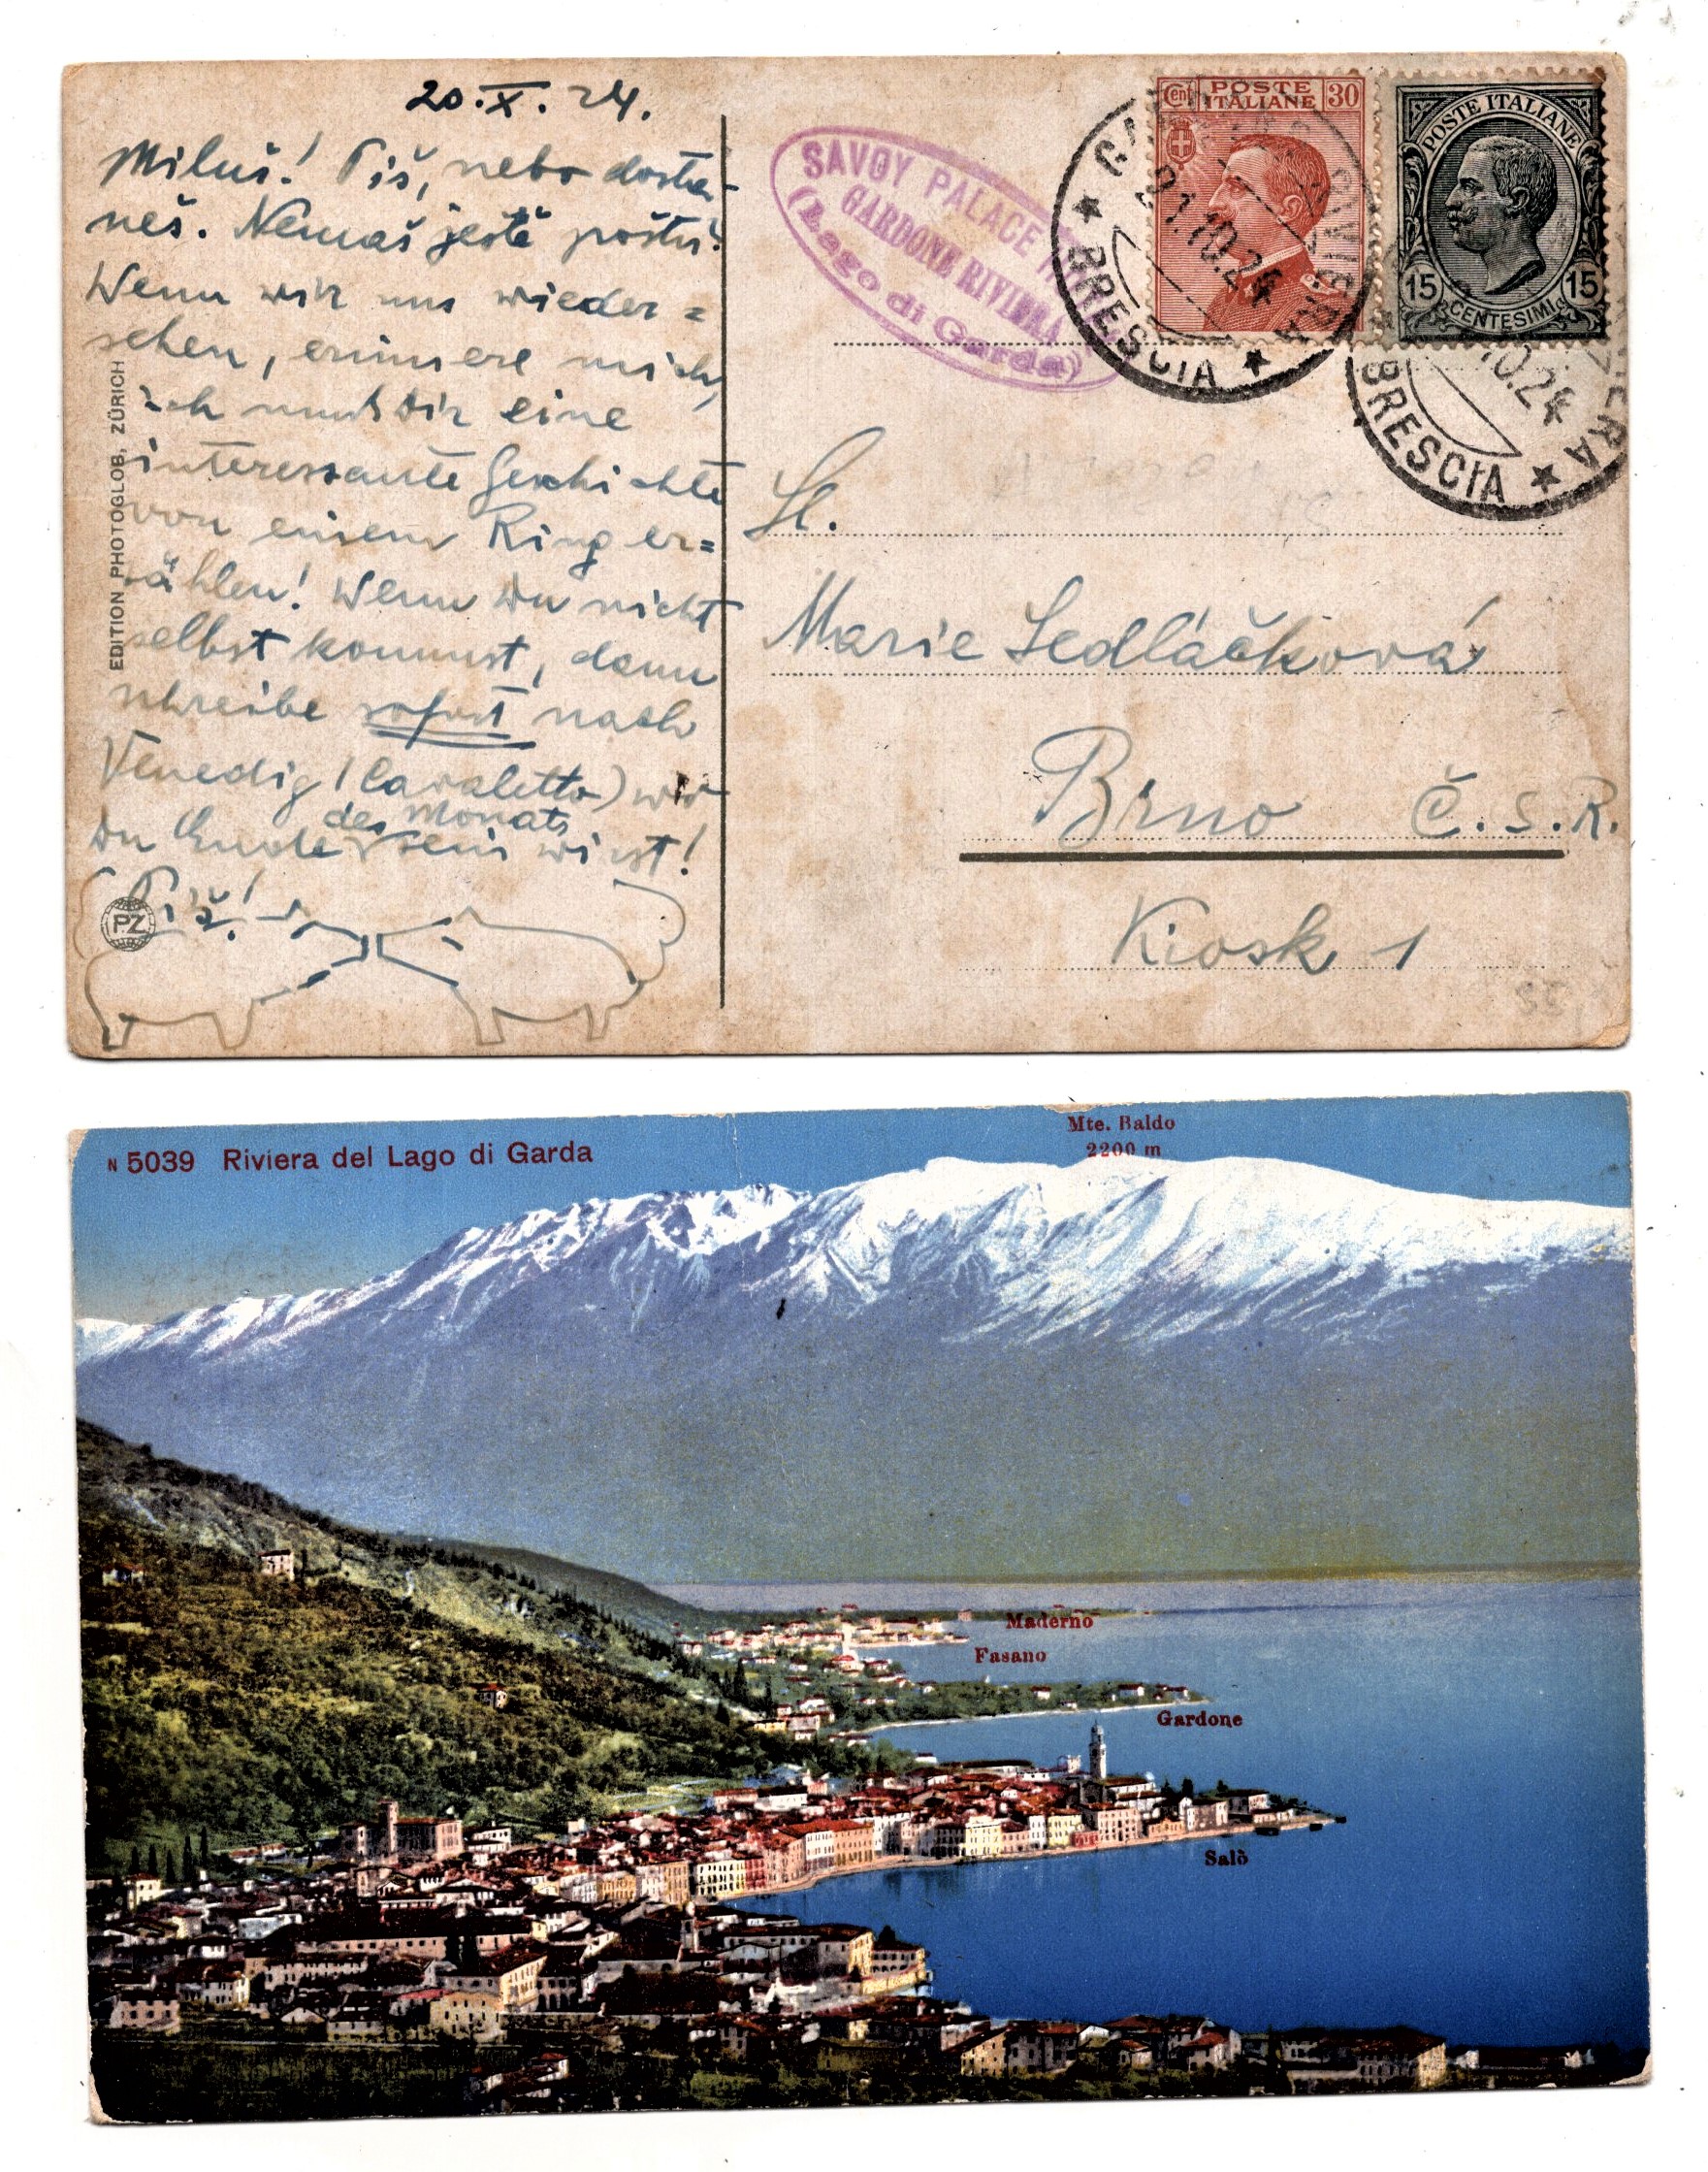 20.X.24.
Miluš! Piš, nebo dosta-
neš. Nemáš jestě poštu!
Wenn wir uns wieder=
sehen, erinnere mich,
ich muß dir eine
interessante Geschichte
von einem Ring er=
zählen! Wenn du nicht
selbst kommst, dann
schreibe sofort nach
Venedig (Cavaletto) wo
du Ende des Monats sein wirst!
Piš!
EDITION PHOTOGLOB, ZÜRICH
PZ
SAVOY PALACE
GARDONE RIVIERA
(Lago di Garda)
POSTE ITALIANE
Cent 30
POSTE ITALIANE
15 15
CENTESIMI
RIVIERA
BRESCIA
10.24
BRESCIA
10.24
Sl.
Marie Sedláčková
Brno Č.S.R.
Kiosk 1
N 5039 Riviera del Lago di Garda
Mte. Baldo
2200 m
Maderno
Fasano
Gardone
Salò